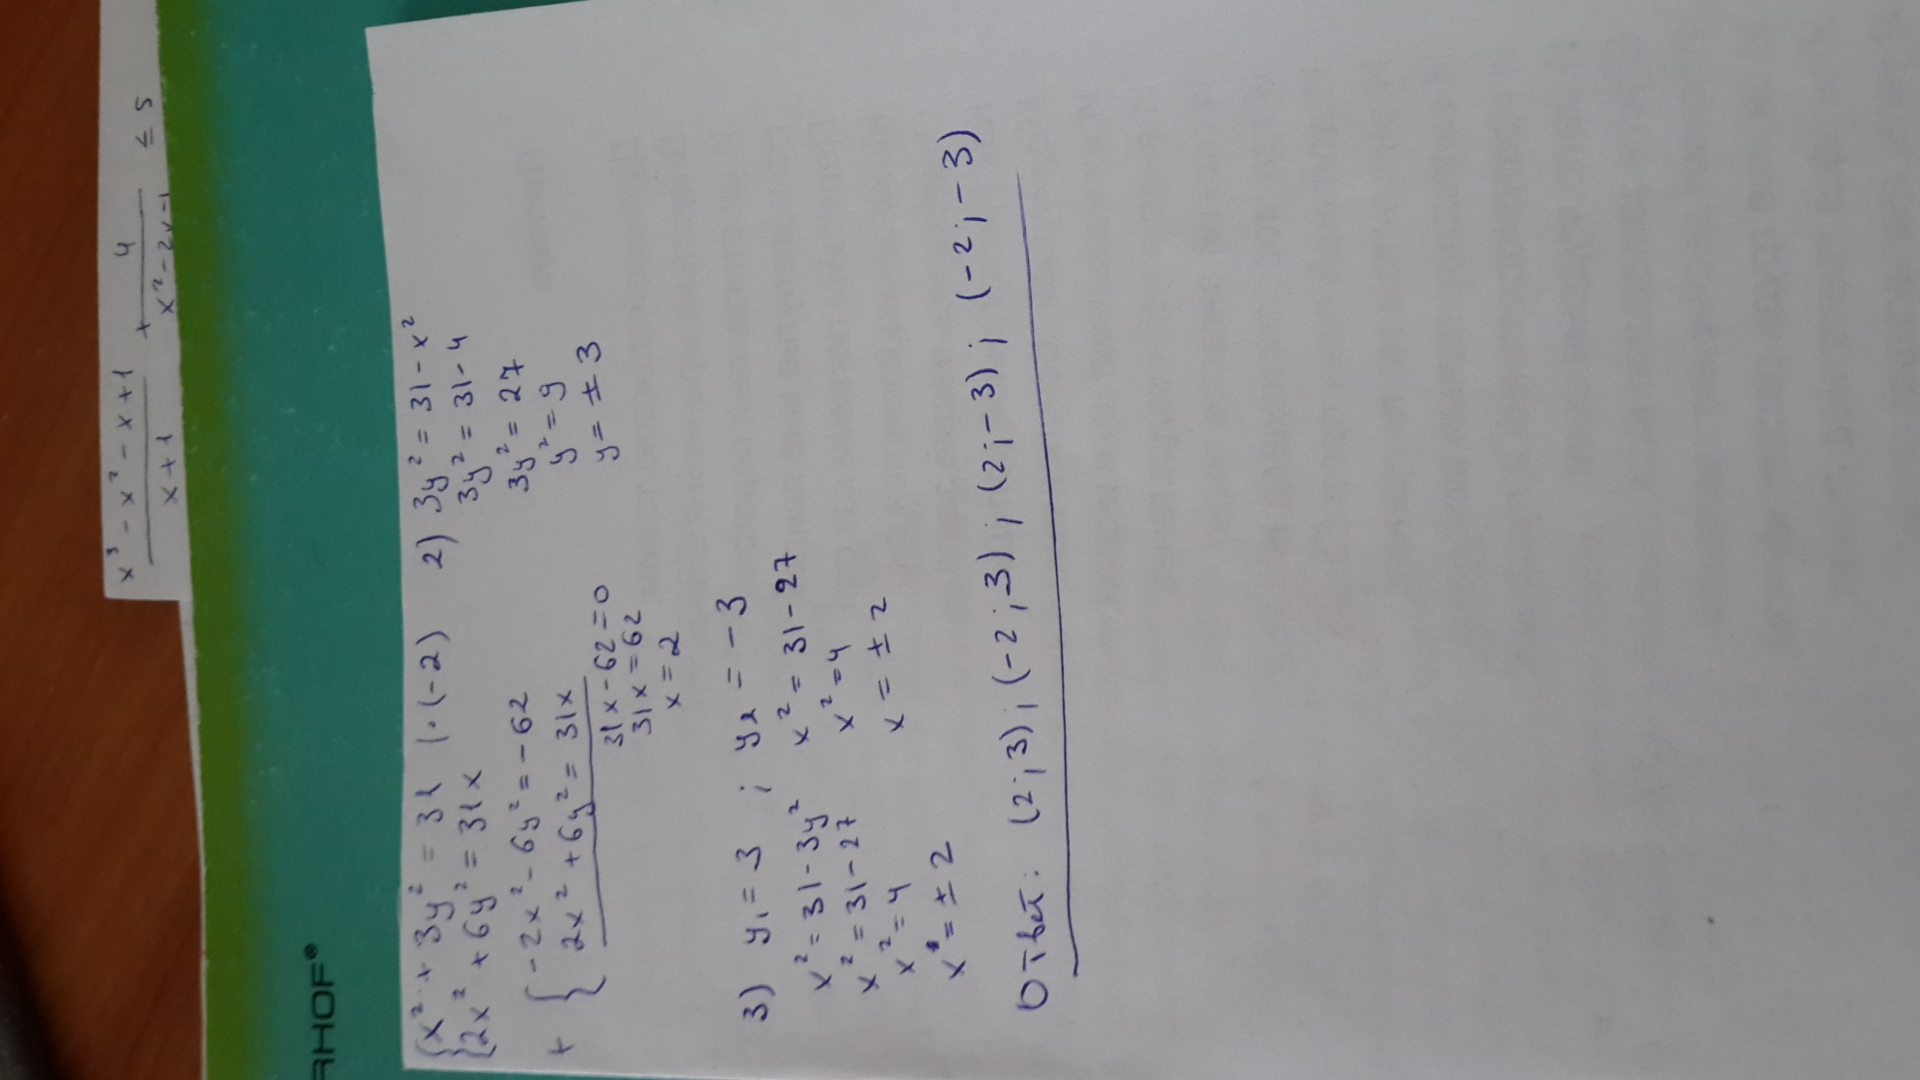 x³ - x² - x + 1 / x + 1 + 4 / x² - 2x - 1 ≤ 5
RHOF®
{ x² + 3y² = 31 | · (-2)
{ 2x² + 6y² = 31x
+ { -2x² - 6y² = -62
{ 2x² + 6y² = 31x
31x - 62 = 0
31x = 62
x = 2
2) 3y² = 31 - x²
3y² = 31 - 4
3y² = 27
y² = 9
y = ± 3
3) y₁ = 3 ; y₂ = -3
x² = 31 - 3y²
x² = 31 - 27
x² = 4
x = ± 2
x² = 31 - 27
x² = 4
x = ± 2
Ответ: (2; 3) ; (-2; 3) ; (2; -3) ; (-2; -3)